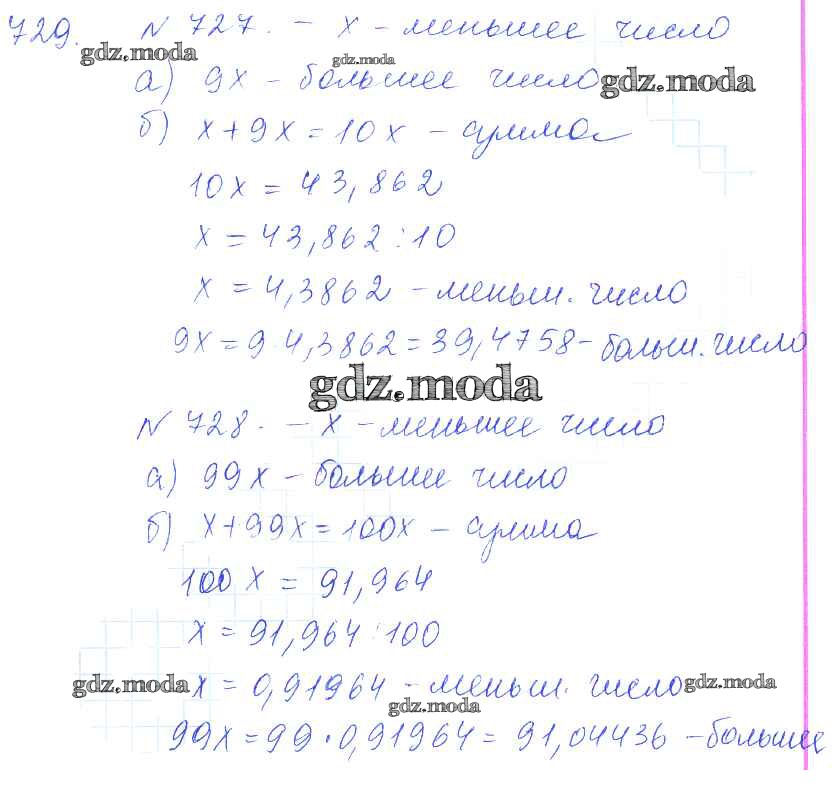 729. N 727. – x – меньшее число
gdz.moda gdz.moda
а) 9x – большее число gdz.moda
б) x + 9x = 10x – сумма
10x = 43,862
x = 43,862 : 10
x = 4,3862 – меньш. число
9x = 9 · 4,3862 = 39,4758 – больш. число
gdz.moda
N 728. – x – меньшее число
а) 99x – большее число
б) x + 99x = 100x – сумма
100x = 91,964
x = 91,964 : 100
gdz.moda x = 0,91964 – меньш. число gdz.moda
gdz.moda
99x = 99 · 0,91964 = 91,04436 – большее